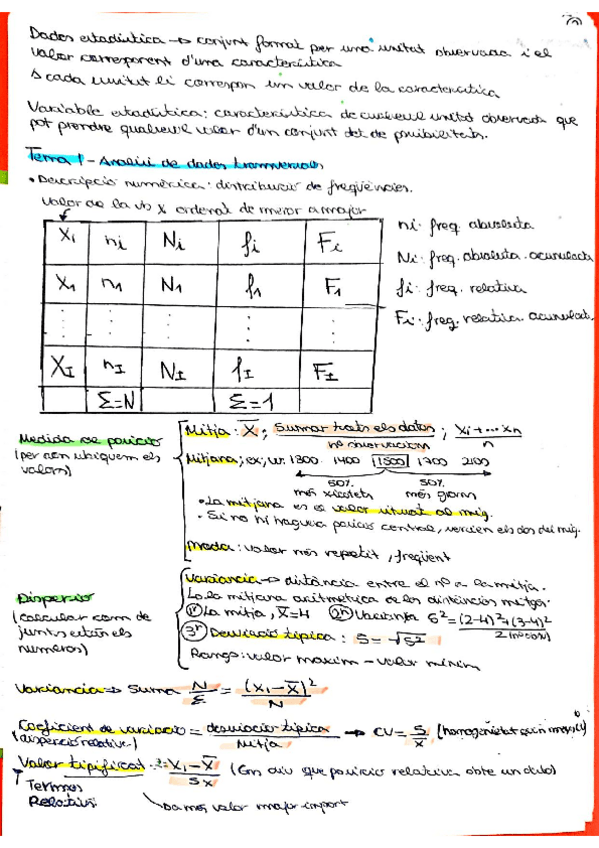 Dades estadística → conjunt format per una unitat observada i el
valor corresponent d'una característica
A cada unitat li correspon un valor de la característica
Variable estadística: característica de cualsevol unitat observada que
pot prendre qualsevol valor d'un conjunt det. de possibilitats.
Tema 1 - Analisi de dades transversals
• Descripció numèrica: distribució de freqüències.
valor de la vb x ordenat de menor a major
Xi ni Ni fi Fi
X1 n1 N1 f1 F1
XI nI NI fI FI
Σ=N Σ=1
ni: freq. absoluta
Ni: freq. absoluta acumulada
fi: freq. relativa
Fi: freq. relativa acumulat.
Medida de posició
(per on ubiquem els
valors)
Mitja: X̄; Sumar tots els datos / nº observacion ; xi+...xn / n
Mitjana; ex; 1300 1400 1500 1700 2100
50% 50%
més xicotets més grans
• La mitjana es el valor situat al mig.
• Si no hi hagués posició central, serien els dos del mig.
Moda: valor més repetit, freqüent
Dispersió
(calcular com de
junts estan els
numeros)
Variancia → distància entre el nº a la mitja.
La mitjana aritmetica de les distàncies
1r La mitja, X̄=4 2n Variança S²=(2-4)²+(3-4)² / 2
3r Desviació típica: S=√S²
Rango: valor maxim - valor minim
Variancia → Suma N/Σ = (x1-X̄)² / N
Coeficient de variació = desviació típica / Mitja → CV = S/X̄
(dispersió relativa)
Valor tipificat: Z = X1-X̄ / Sx (En que posició relativa
Termes
Relatius
valor major import